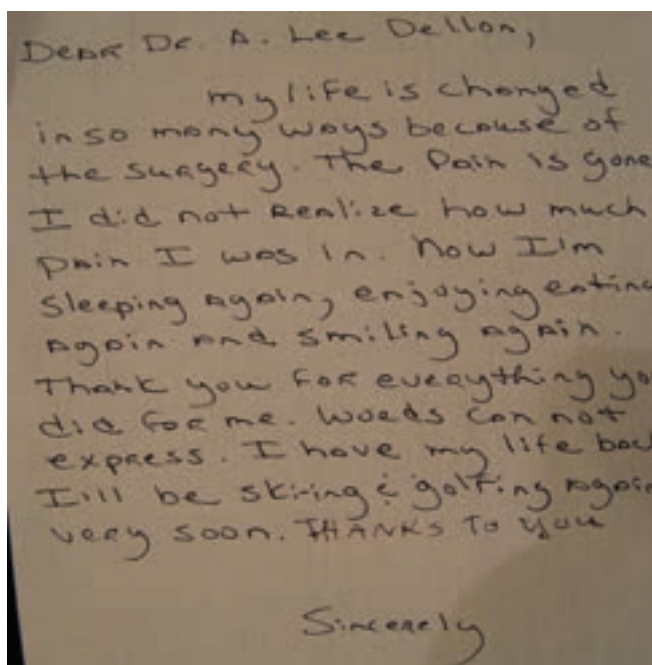 Dear Dr. A. Lee Dellon,
my life is changed
in so many ways because of
the surgery. The pain is gone
I did not realize how much
pain I was in. Now I'm
sleeping again, enjoying eating
again and smiling again.
Thank you for everything you
did for me. Words can not
express. I have my life back
I'll be skiing & golfing again
very soon. THANKS TO YOU
Sincerely